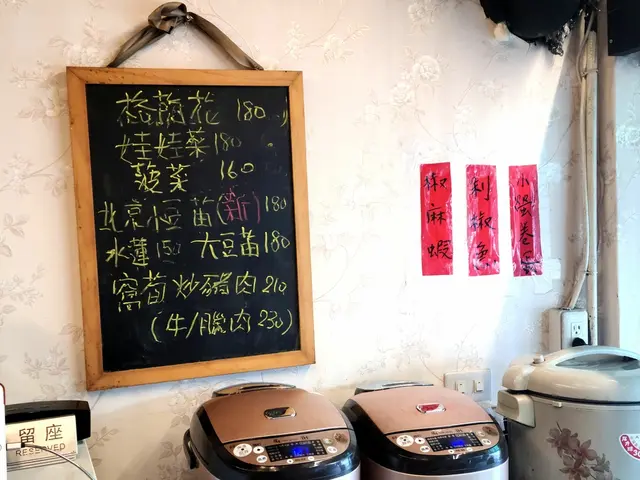 格蘭花 180
娃娃菜 180
菠菜 160
北京小豆苗(新) 180
水蓮 150 大豆苗 180
窩筍炒豬肉 210
(牛/臘肉 230)
椒麻蝦
剁椒魚
留座
RESERVED